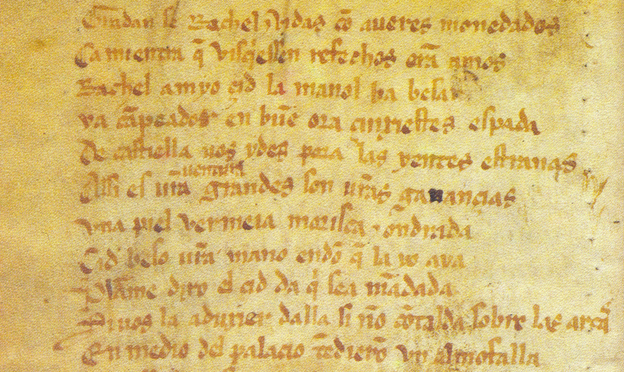 Gradan se Rachel ⁊ vidas cõ aueres monedados
Ca mientra q̃ visquiessen refechos erã amos
Rachel amyo çid la manol ba besar
ya cãpeador en bũe ora cinxiestes espada
De castiella uos ydes pora las yentes estranas
Assi es ur̃a uentura grandes son ur̃as ganancias
Vna piel vermeia morisca ⁊ ondrada
Çid beso ur̃a mano endõ q̃ la yo aya
Plazme dixo el çid da q̃ sea mãdada
Si uos la aduxier dalla si nõ cõtalda sobre las arcas
En medio del palacio tẽdierõ vn almofalla